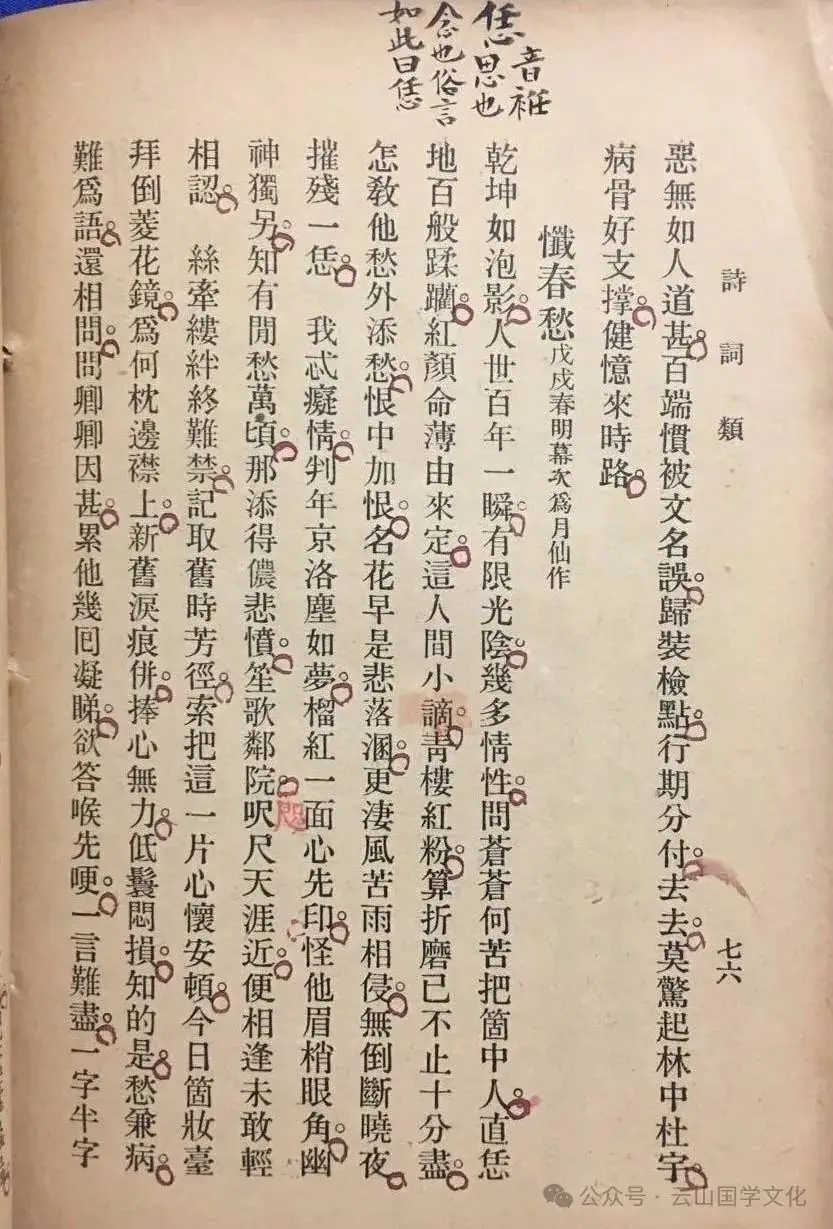 恁音袵
恁思也
念也俗言
如此曰恁
詩詞類
七六
惡無如人道甚。百端慣被文名誤。歸裝檢點。行期分付。去去。莫驚起林中杜宇。
病骨好支撐。健憶來時路。
懺春愁 戊戌春明幕次爲月仙作
乾坤如泡影。人世百年一瞬。有限光陰。幾多情性。問蒼蒼何苦把箇中人。直恁
地百般蹂躪。紅顏命薄由來定。這人間小謫。靑樓紅粉。算折磨已不止十分盡。
怎敎他愁外添愁。恨中加恨。名花早是悲落溷。更淒風苦雨相侵。無倒斷曉夜。
摧殘一恁。 我忒癡情。判年京洛塵如夢。榴紅一面心先印。怪他眉梢眼角。幽
神獨另。知有閒愁萬頃。那添得儂悲憤。笙歌鄰院。咫尺天涯近。便相逢未敢輕
相認。 絲牽縷絆終難禁。記取舊時芳徑。索把這一片心懷安頓。今日箇妝臺
拜倒菱花鏡。爲何枕邊襟上。新舊淚痕併。捧心無力。低鬟悶損。知的是。愁兼病。
難爲語。還相問。問卿卿因甚。累他幾囘凝睇。欲答喉先哽。一言難盡。一字半字
公众号·云山国学文化